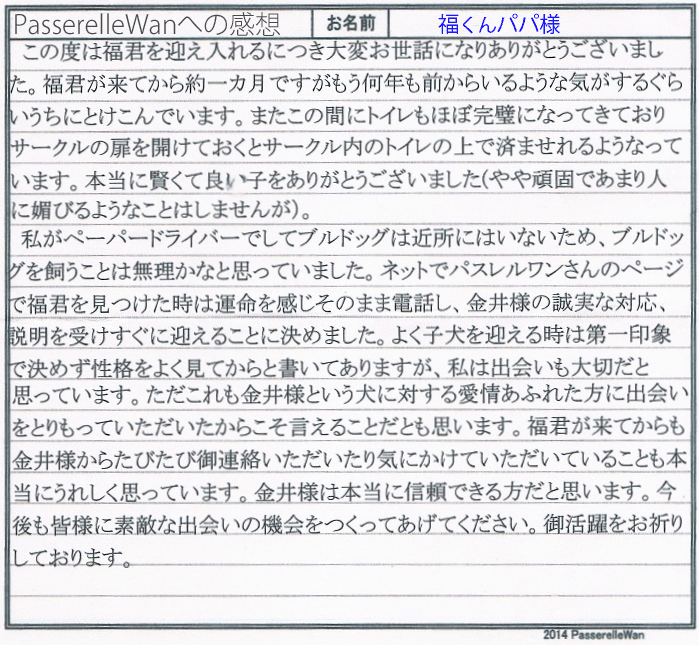 PasserelleWanへの感想 お名前 福くんパパ様
この度は福君を迎え入れるにつき大変お世話になりありがとうございまし
た。福君が来てから約一カ月ですがもう何年も前からいるような気がするぐら
いうちにとけこんでいます。またこの間にトイレもほぼ完璧になってきており
サークルの扉を開けておくとサークル内のトイレの上で済ませれるようなって
います。本当に賢くて良い子をありがとうございました(やや頑固であまり人
に媚びるようなことはしませんが)。
私がペーパードライバーでしてブルドッグは近所にはいないため、ブルドッ
グを飼うことは無理かなと思っていました。ネットでパスレルワンさんのページ
で福君を見つけた時は運命を感じそのまま電話し、金井様の誠実な対応、
説明を受けすぐに迎えることに決めました。よく子犬を迎える時は第一印象
で決めず性格をよく見てからと書いてありますが、私は出会いも大切だと
思っています。ただこれも金井様という犬に対する愛情あふれた方に出会い
をとりもっていただいたからこそ言えることだとも思います。福君が来てからも
金井様からたびたび御連絡いただいたり気にかけていただいていることも本
当にうれしく思っています。金井様は本当に信頼できる方だと思います。今
後も皆様に素敵な出会いの機会をつくってあげてください。御活躍をお祈り
しております。
2014 PasserelleWan